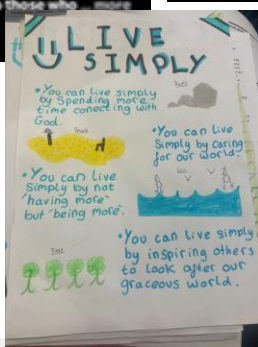 those who ... more
LIVE
SIMPLY
• You can live simply
by Spending more
time conecting with
God.
• You can live
Simply by caring
for our world.
• You can live
Simply by not
'having more'
but 'being more'.
Sea
Trees
• You can live simply
by inspiring others
to look after our
graceous world.